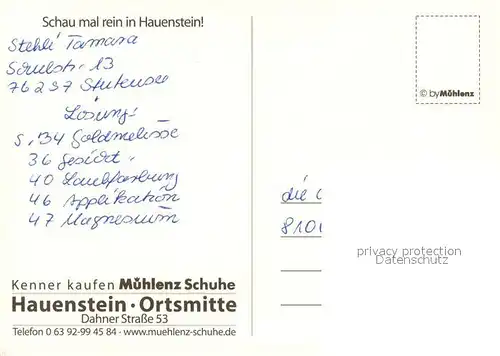 Schau mal rein in Hauenstein!
Stehli Tamara
Schulstr. 13
76297 Stutensee
Lösung:
S. 34 Goldmelisse
36 Gesicht
40 Laubfärbung
46 Applikation
47 Magnesium
© by Mühlenz
die
810
privacy protection
Datenschutz
Kenner kaufen Mühlenz Schuhe
Hauenstein · Ortsmitte
Dahner Straße 53
Telefon 0 63 92-99 45 84 · www.muehlenz-schuhe.de